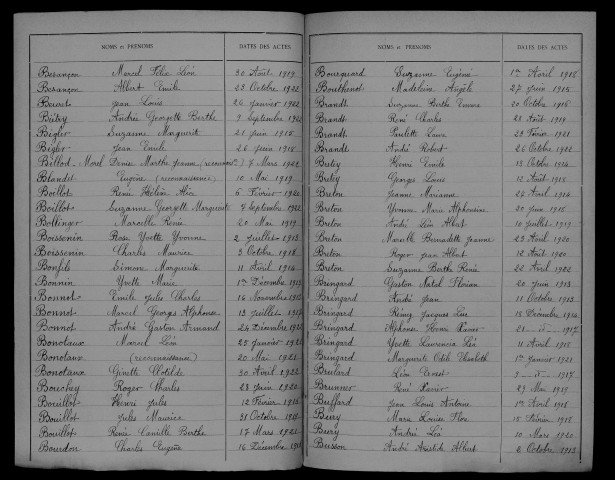 NOMS et PRÉNOMS DATES DES ACTES
Besançon Marcel Félix Léon 30 Août 1919
Besançon Albert Emile 23 Octobre 1922
Beuret Jean Louis 26 Janvier 1922
Biétry Andrée Georgette Berthe 9 Septembre
Bégler Suzanne Marguerite 21 Juin 1915
Bégler Jean Emile 26 Juin 1918
Marthe Jeanne 7 Mars 1922
Blaudet Eugène (reconnaissance) 10 Mai 1919
Boillot Renée Hélène 6 Février 1922
Boillot Suzanne Georgette Marguerite 7 Septembre
Bollinger Marcelle Renée 20 Mai 1919
Boissenin Rose Yvette Yvonne 2 Juillet 1913
Boissenin Charles Maurice 3 Octobre 1918
Bonfils Simone Marguerite 11 Avril 1914
Bonnin Yvette Marie 1er Décembre
Bonnot Emile Jules Charles 16 Novembre
Bonnot Marcel Georges Alphonse 13 Juillet 1917
Bonnot André Gaston Armand 24 Décembre
Bonotaux Marcel Léon 25 Janvier 1921
Bonotaux (reconnaissance) 20 Mai 1921
Bonotaux Ginette Clotilde 30 Avril 1922
Bouchey Roger Charles 23 Juin 1920
Bouillot Henri Jules 12 Février
Bouillot Jules Maurice 31 Octobre
Bouillot Renée Camille Berthe 17 Mars 1921
Bourdon Charles Eugène 16 Décembre
NOMS et PRÉNOMS DATES DES ACTES
Bourquard Suzanne Eugénie 1er Avril 1918
Bouthenot Madeleine Angèle 27 Juin 1915
Brandt Suzanne Berthe 20 Octobre 1916
Brandt René Charles 28 Août 1919
Brandt Paulette Laure 28 Février 1921
Brandt André Robert 26 Octobre 1922
Bretey Henri Emile 18 Octobre 1914
Bretey Georges Louis 12 Août 1918
Breton Jeanne Marianne 28 Avril 1914
Breton Yvonne Marie Alphonsine 20 Juin 1918
Breton André Léon Albert 10 Juillet 1919
Breton Marcelle Bernadette Jeanne 23 Avril 1920
Breton Roger Jean Albert 18 Août 1920
Breton Suzanne Berthe Renée 22 Avril 1922
Bringard Gaston Natal Florian 20 Juin 1913
Bringard André Jean 11 Octobre 1913
Bringard Rémy Jacques Luc 18 Décembre 1914
Bringard Alphonse Henri Xavier 21 1917
Bringard Yvette Laurencia Léa 11 Avril 1918
Bringard Marguerite Odile Elisabeth 1er Janvier 1921
Brulard Léon Ernest 9 1917
Brunner René Xavier 29 Mai 1919
Buffard Jean Louis Antoine 1er Avril 1918
Bury Marie Louise Flore 18 Février 1918
Bury André Léo 10 Mars 1920
Busson André Aristide Albert 2 Octobre 1913